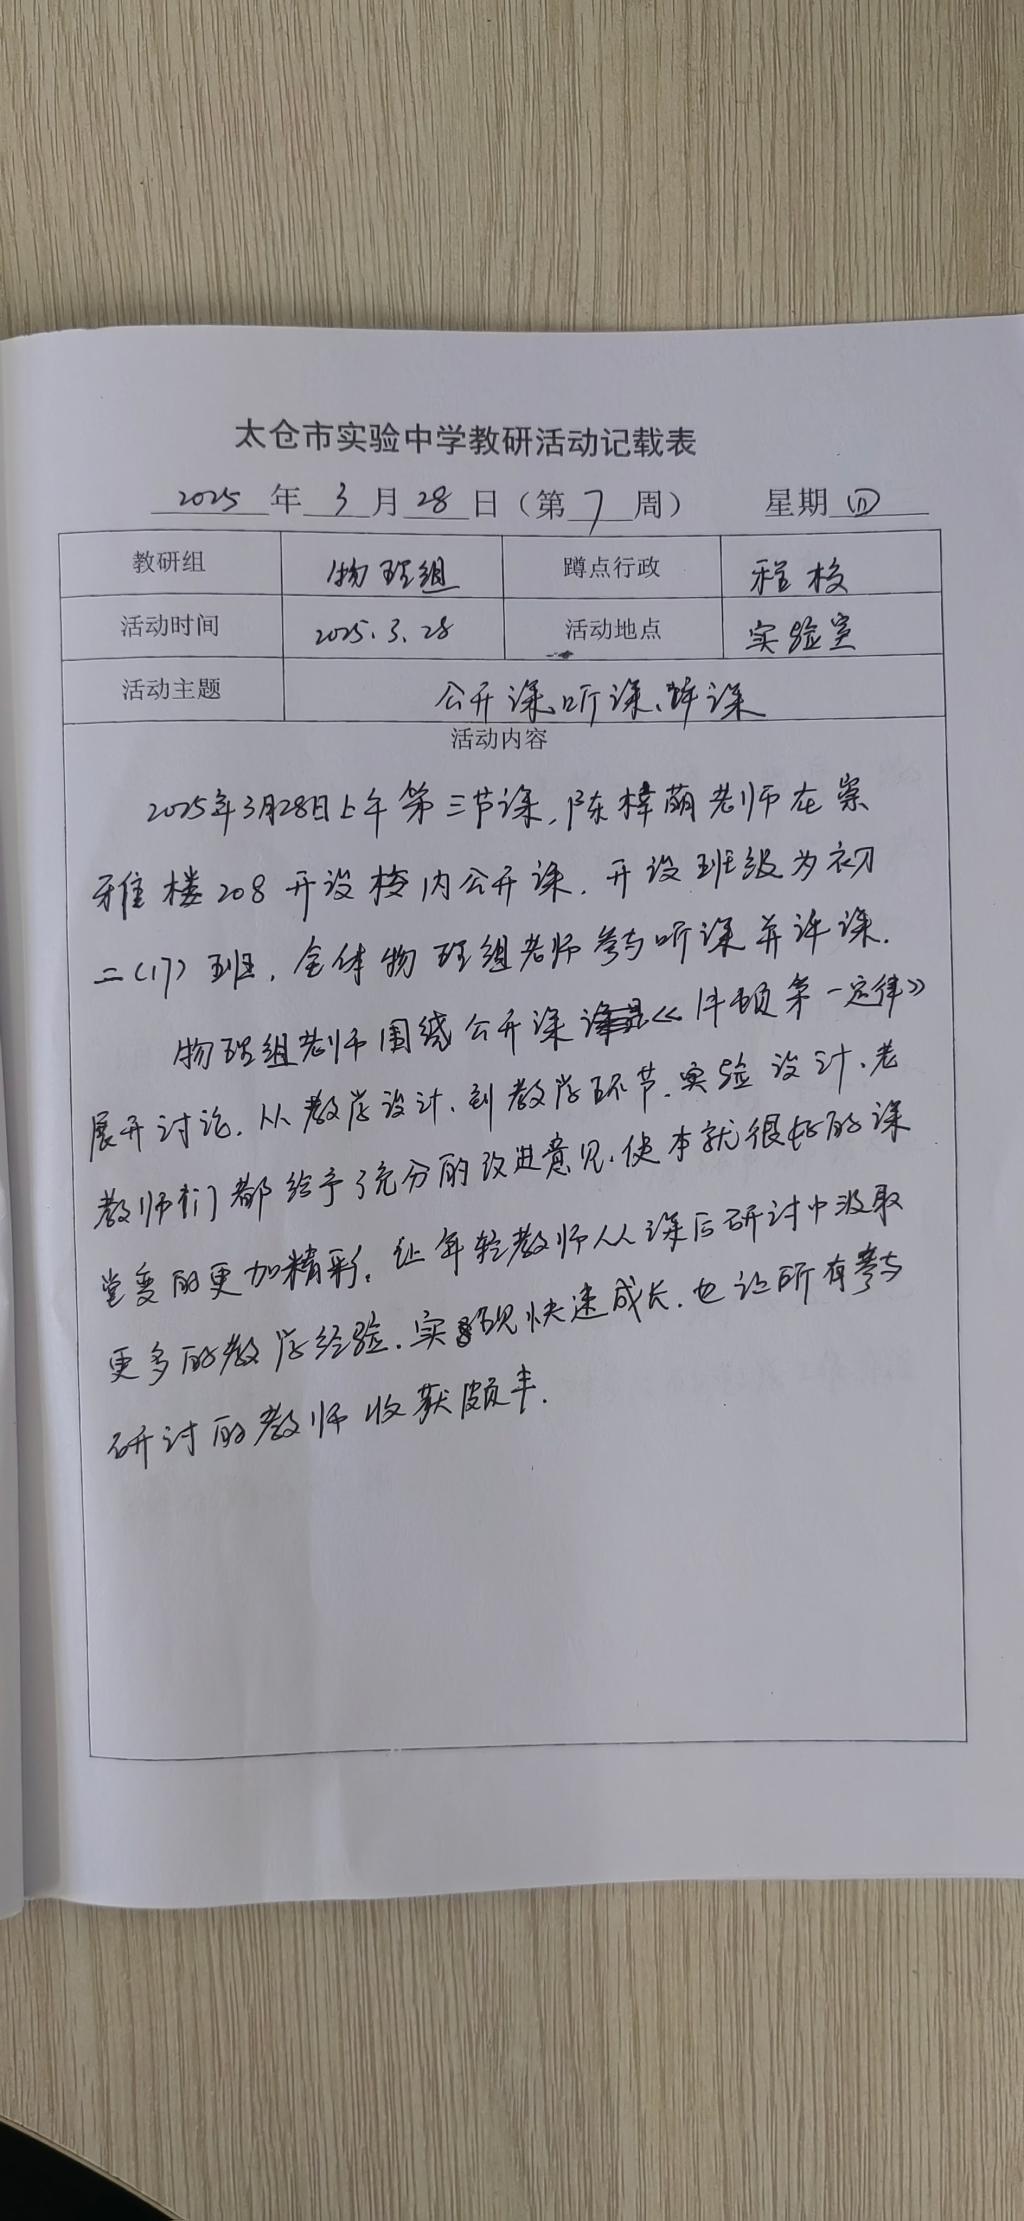 太仓市实验中学教研活动记载表
2025年3月28日（第7周） 星期四
教研组 物理组 蹲点行政 程校
活动时间 2025.3.28 活动地点 实验室
活动主题 公开课、听课、评课
活动内容
2025年3月28日上午第三节课,陈梓萌老师在崇
雅楼208开设校内公开课.开设班级为初
二(17)班,全体物理组老师参与听课并评课.
物理组老师围绕公开课《牛顿第一定律》
展开讨论.从教学设计、到教学环节、实验设计、老
教师们都给予了充分的改进意见.使本就很好的课
堂变的更加精彩。让年轻教师从课后研讨中汲取
更多的教学经验.实现快速成长.也让所有参与
研讨的教师收获颇丰.